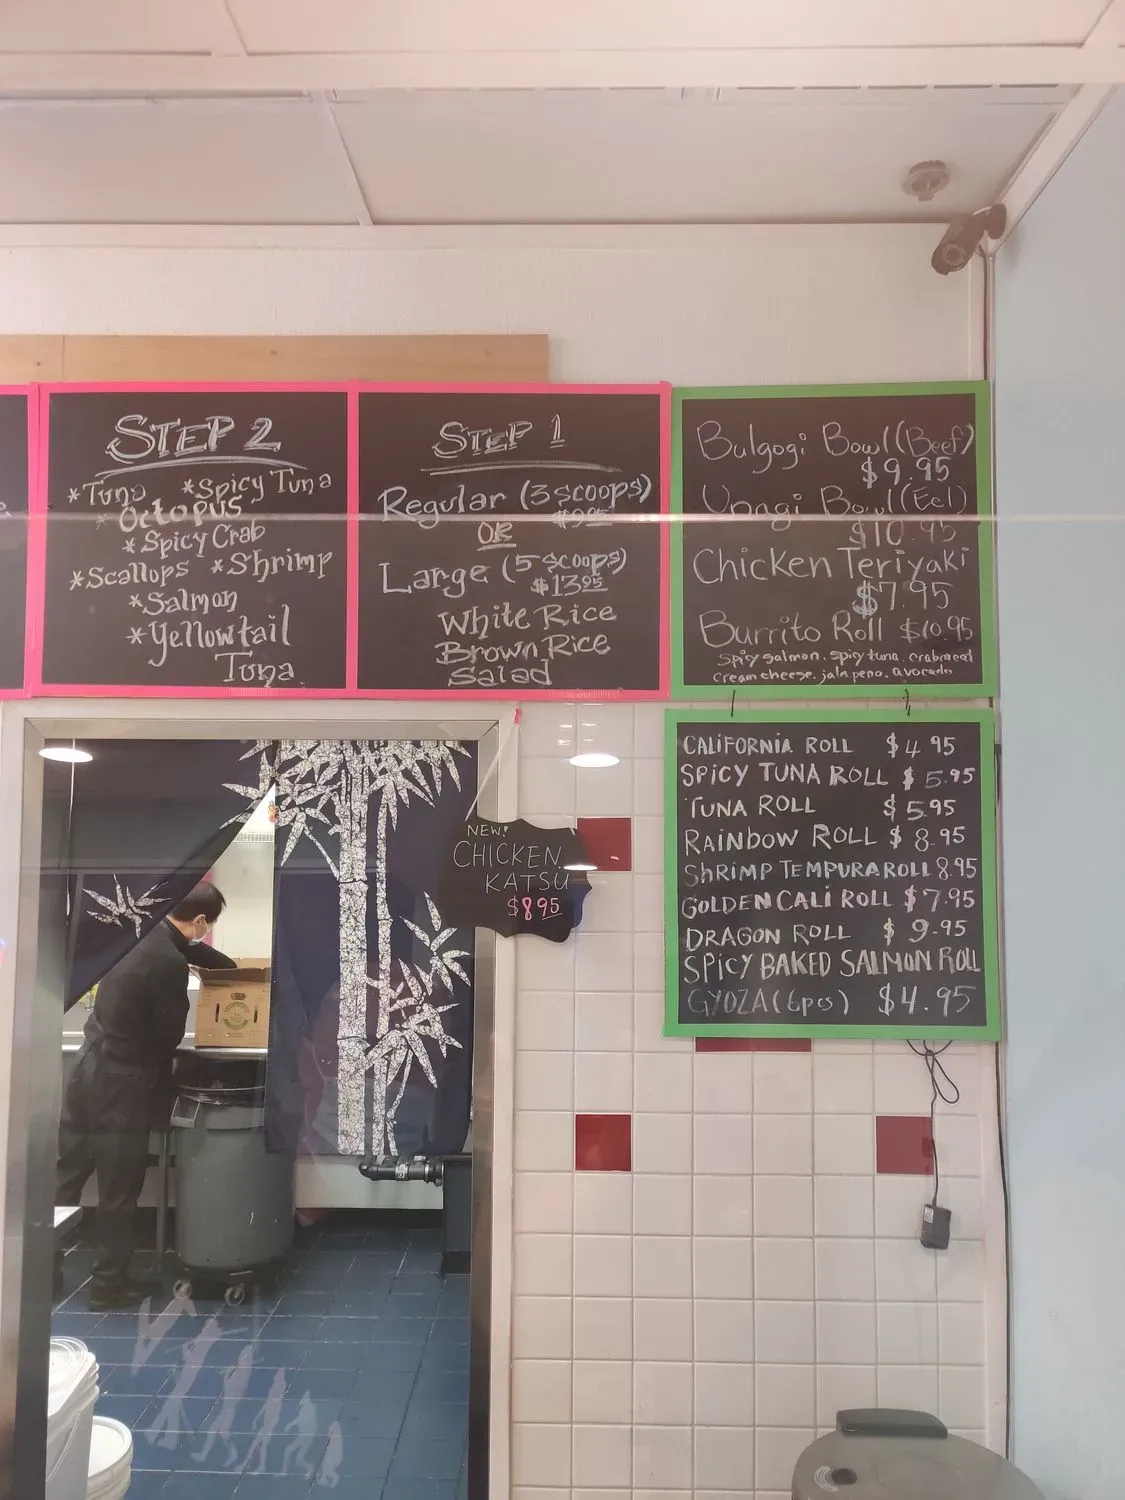 STEP 2
*Tuna *Spicy Tuna
*Octopus
*Spicy Crab
*Scallops *Shrimp
*Salmon
*Yellowtail
Tuna
STEP 1
Regular (3 scoops)
OR
Large (5 scoops)
$13.95
White Rice
Brown Rice
Salad
Bulgogi Bowl (Beef)
$9.95
Unagi Bowl (Eel)
$10.95
Chicken Teriyaki
$7.95
Burrito Roll $10.95
Spicy salmon, spicy tuna, crabmeat
cream cheese, jalapeno, avocado
NEW!
CHICKEN
KATSU
$8.95
CALIFORNIA ROLL $4.95
SPICY TUNA ROLL $5.95
TUNA ROLL $5.95
RAINBOW ROLL $8.95
ShRIMP TEMPURA ROLL 8.95
GOLDEN CALI ROLL $7.95
DRAGON ROLL $9.95
SPICY BAKED SALMON ROLL
GYOZA (6pcs) $4.95